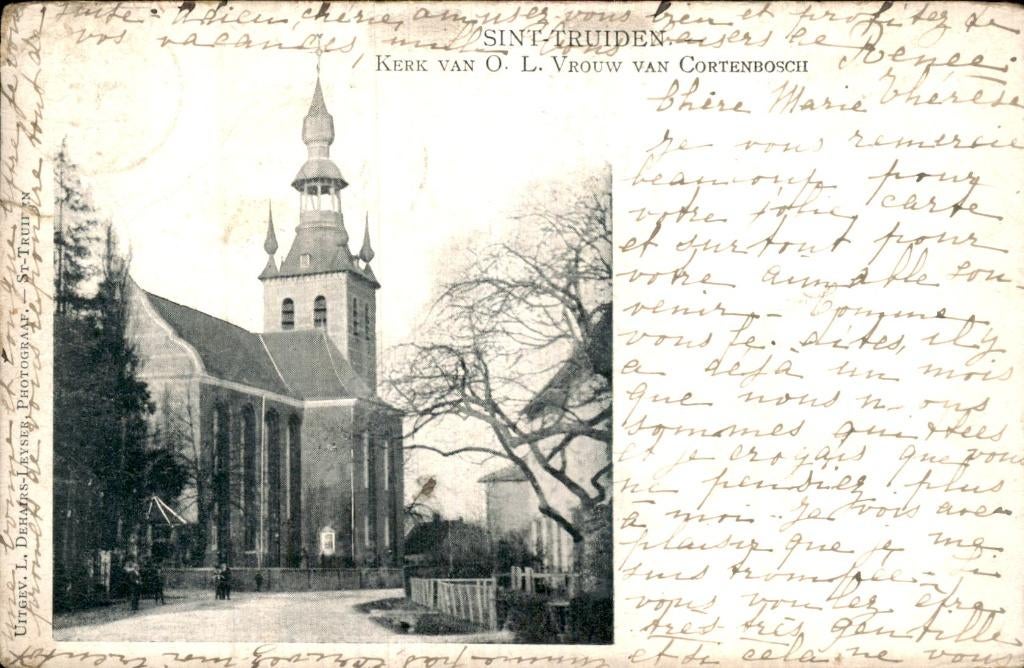 SINT-TRUIDEN.
KERK VAN O. L. VROUW VAN CORTENBOSCH
UITGEV. L. DEHAIRS-LEYSER, PHOTOGRAAF. — ST-TRUIDEN
Chère Marie Thérèse
Je vous remercie
beaucoup pour
votre jolie carte
et surtout pour
votre aimable sou-
venir - Comme
vous le dites, il y
a déjà un mois
que nous n. ous
sommes quittées
et je croyais que vous
ne pensiez plus
à moi. Je vois avec
plaisir que je me
suis trompée -
vous voulez être
très très gentille
et si cela ne vous
vous
de répondre tout de
suite. Adieu chérie, amusez vous bien et profitez de
vos vacances, mille baisers de
Renée.